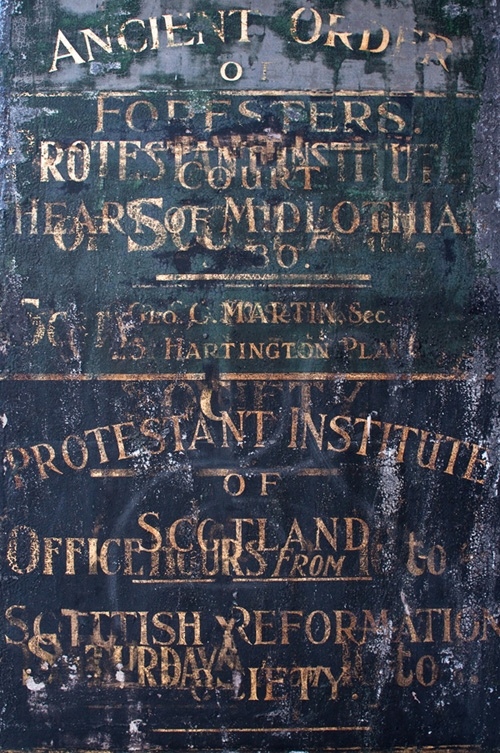 ANCIENT ORDER
OF
FORESTERS.
PROTESTANT INSTITUTE
COURT
HEART OF MIDLOTHIAN
OF SCOTLAND.
30.
GEO. C. MARTIN, SEC.
HARTINGTON PLACE
SOCIETY
PROTESTANT INSTITUTE
OF
SCOTLAND
OFFICE HOURS FROM 10 to
SCOTTISH REFORMATION
SATURDAY 10 to
SOCIETY.